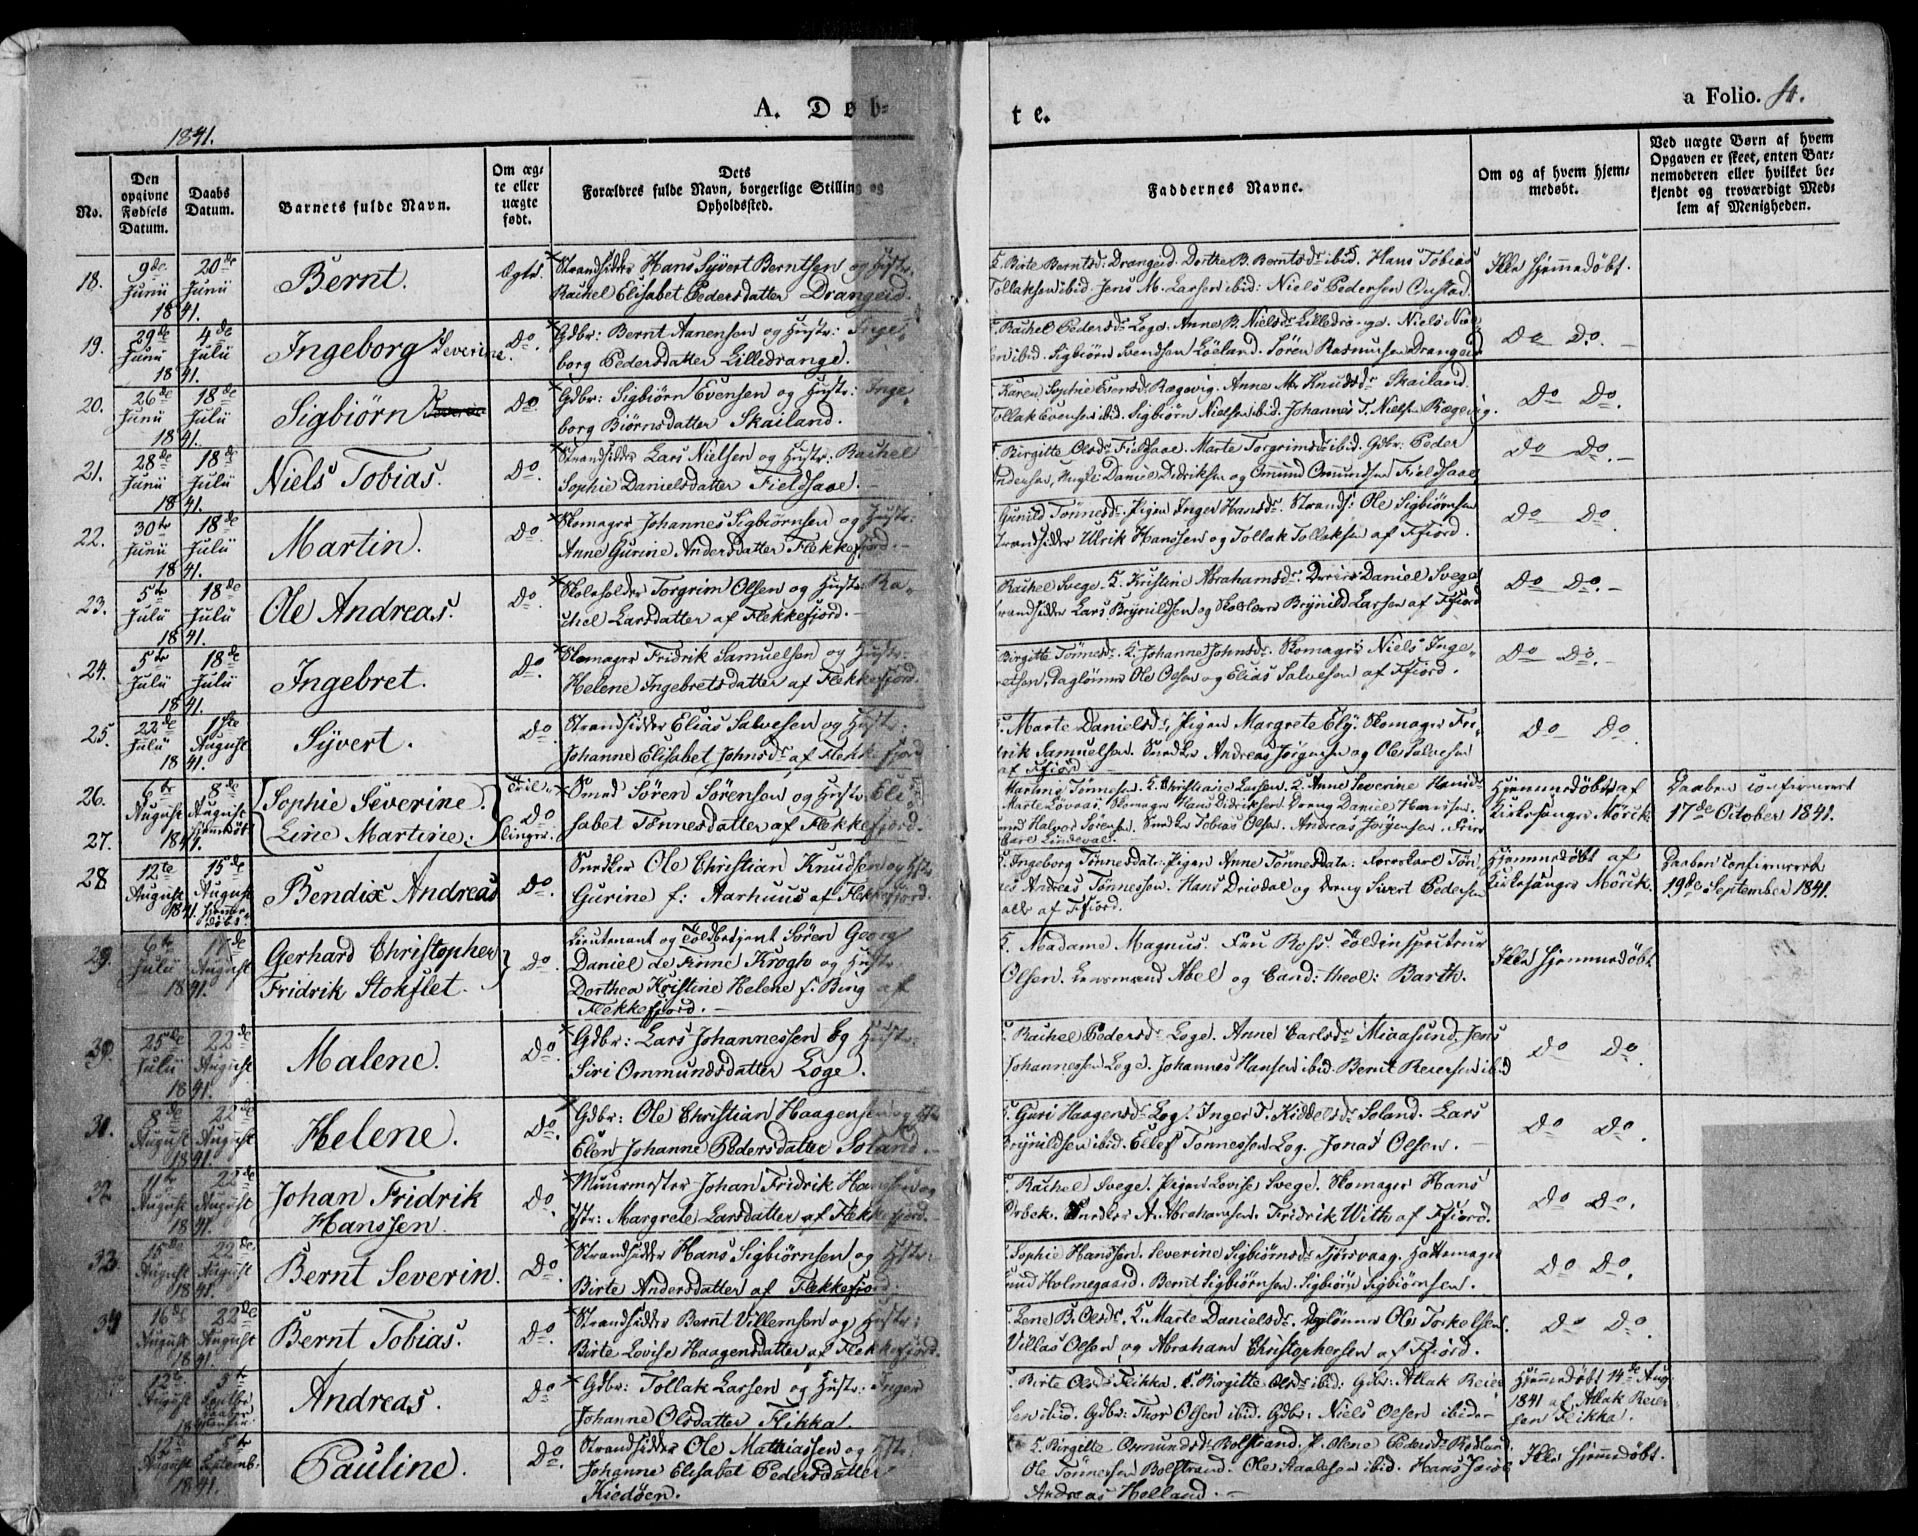 A. Døb-
te.
a Folio. 4.
1841.
No.
Den opgivne Fødsels Datum.
Daabs Datum.
Barnets fulde Navn.
Om æg-
te eller
uægte
født.
Dets
Forældres fulde Navn, borgerlige Stilling og
Opholdssted.
Faddernes Navne.
Om og af hvem hjem-
medøbt.
Ved uægte Børn af hvem
Opgaven er skeet, enten Bar-
nemoderen eller hvilket be-
kjendt og troværdigt Med-
lem af Menigheden.
18. 9de Junii 1841. 20de Junii Bernt. Ægte. Strandsidder Hans Syvert Berntsen og Hustr:
Rachel Elisabet Pedersdatter Drangeid.
Birte Berntsd: Drangeid. Dorthe B. Berntsdr ibid. Hans Tobias
Tollaksen ibid. Jens M. Larsen ibid: Niels Pedersen
Ikke hjemmedøbt.
19. 29de Junii 1841. 4de Julii Ingeborg Severine. Do. Gdbr: Bernt Aanensen og Hustr: Inge-
borg Pedersdatter Lilledrange.
Rachel Pedersdr Loge. Anne B. Nielsdr Lilledrange. Niels Niel-
sen ibid. Sigbiørn Svendsen Løeland. Søren Rasmusen Drangeid
Do Do.
20. 26de Junii 1841. 18de Julii Sigbiørn Do. Gdbr: Sigbiørn Evensen og Hustr: Inge
borg Biørnsdatter Skailand.
Karen Sophie Evensdr Rægevig. Anne M. Knudsdr Skailand.
Tollak Evensen ibid. Sigbiørn Nielsen ibid. Johannes T. Nielsen Rægevig.
Do Do.
21. 28de Junii 1841. 18de Julii Niels Tobias. Do. Strandsidder Lars Nielsen og Hustr: Rachel
Sophie Danielsdatter Fieldsaae.
Birgitte Olsdr Fieldsaae. Marte Torgrimsdr ibid. Gdbr: Peder
Andersen, Daniel Didriksen og Ommund Ommundsen Fieldsaae
Do Do.
22. 30te Junii 1841. 18de Julii Martin. Do. Skomager Johannes Sigbiørnsen og Hustr:
Anne Gurine Andersdatter Flekkefiord.
Gunild Tønnesdr. Pigen Inger Hansdr. Strands: Ole Sigbiørnsen
Strandsidder Ulrik Hanssen og Tollak Tollaksen af Ffiord.
Do Do.
23. 5te Julii 1841. 18de Julii Ole Andreas. Do. Skoleholder Torgrim Olsen og Hustr: Ra-
chel Larsdatter af Flekkefjord.
Rachel Svege. K. Kristine Abrahamsdr. Daniel Svege
Strandsidder Lars Brynildsen og Skolelærer Brynild Larsen af Ffiord
Do Do.
24. 5te Julii 1841. 18de Julii Ingebret. Do. Skomager Fridrik Samuelsen og Hustr:
Helene Ingebretsdatter af Flekkefjord.
Birgitte Tønnesdr. K. Johanne Johnsdr. Skomager Niels Inge-
bretsen, Dagløner Ole Olsen og Elias Salvesen af Ffiord.
Do Do.
25. 22de Julii 1841. 1ste August Syvert. Do. Strandsidder Elias Salvesen og Hustr:
Johanne Elisabet Johnsdr af Flekkefiord
Marte Danielsdr, Pigen Margrete Ely. Skomager Fri-
drik Samuelsen. Snedker Andreas Jørgensen og Ole Salvesen
af Ffiord
Do Do.
26. 27. 6te August 1841. 8de August hjemmedøbt Sophie Severine. Line Martine. Tvil- Do linger. Smed Søren Sørensen og Hustr: Eli-
sabet Tønnesdatter af Flekkefjord.
Martine Tønnesen. K. Christiane Larsen. K. Anne Severine
Marte Lovaas. Skomager Hans Didriksen. Dreng Daniel
Smed Halvor Sørensen. Snedker Tobias Olsen. Andreas Jørgensen.
Carl Lindeval.
Hjemmedøbt af
Kirkesanger Mørik.
Daaben confirmeret
17de October 1841.
28 12te August 1841. 15de August hjemmedøbt. Bendix Andreas Do. Snedker Ole Christian Knudsen og Hstr
Gurine f: Aarhuus af Flekkefjord.
Ingeborg Tønnesdatr. Pigen Anne Tønnesdatr: Tøn
nes Andreas Tønnessen. Hans Drivdal og Dreng Sivert Pedersen
alle af Ffiord.
Hjemmedøbt af
Kirkesanger Mörik.
Daaben Confirmeret
19de September 1841.
29. 6te Julii 1841. 17de August Gerhard Christopher
Fridrik Stokflet. Do. Lieutenant og Toldbetjent Søren Georg
Daniel de Finne Krogh og Hustr:
Dorthea Kristine Helene f: Bing af
Flekkefjord.
Madame Magnus. Fru Ross. Toldinspecteur
Olsen. Lensmand Abel og Cand: theol: Barth.
Ikke hjemmedøbt
30. 25de Julii 1841. 22de August Malene. Do. Gdbr: Lars Johannessen og Hustr:
Siri Ommundsdatter Loge.
Rachel Pedersdr Loge. Anne Carlsdr Mioasund. Jens
Johannessen Loge. Johannes Hansen ibid. Bernt Reiersen ibid
Do Do.
31. 8de August 1841. 22de August Helene. Do. Gdbr: Ole Christian Haagensen og Hstr
Elen Johanne Pedersdatter Soland.
Guri Haagensdr Log. Inger T. Kiddelsdr Soland. Lars
Brynildsen ibid. Ellef Tønnessen Log. Jonas Olsen.
Do Do.
32. 11te August 1841. 22de August Johan Fridrik
Hanssen. Do. Muurmester Johan Fridrik Hanssen og
Hstr: Margrete Larsdatter af Flekkefjord.
Rachel Svege. Pigen Lovise Svege. Skomager Hans
Orbek. Snedker A. Abrahamsen. Fridrik With af Ffiord.
Do Do.
33. 15de August 1841. 22de August Bernt Severin. Do. Strandsidder Hans Sigbiørnsen og Hstr:
Birte Andersdatter af Flekkefjord.
Sophie Hanssen. Severine Sigbiørnsdr Tjørsvaag. Hattemager
Holmegaard. Bernt Sigbiørnsen. Sigbiørn Sigbiørnsen.
Do Do.
34 16de August 1841. 22de August Bernt Tobias. Do. Strandsidder Bernt Villemsen og Hustr:
Birte Lovise Haagensdatter af Flekkefjord.
Lene B. Olsdr. K. Marte Danielsdr. Dagløner Ole Torkelsen.
Villas Olsen og Abraham Christophersen af Ffiord.
Do Do.
12te August 1841 5te Septbr Andreas. Do. Gdbr: Tollak Larsen og Hustr: Inger
Johanne Olsdatter Flikka.
Birte Olsdr Flikka. K. Birgitte Olsdr ibid: Gdbr: Atlak Reier
sen ibid. Gdbr: Thor Olsen ibid. Gdbr: Niels Olsen ibid.
Hjemmedøbt 14de Aug:
1841 af Atlak Reier-
sen Flikka.
12te August 1841. 5te Septemb. Pauline. Do. Strandsidder Ole Mathiassen og Hstr:
Johanne Elisabet Pedersdatter
Kiedøen.
K. Birgitte Omundsdr Bolstrand. P. Olene Pedersdr Rødland.
Ole Tønnessen Bolstrand. Ole Aaalesen ibid. Hans Jacob
Andreas Holland.
Ikke hjemmedøbt.